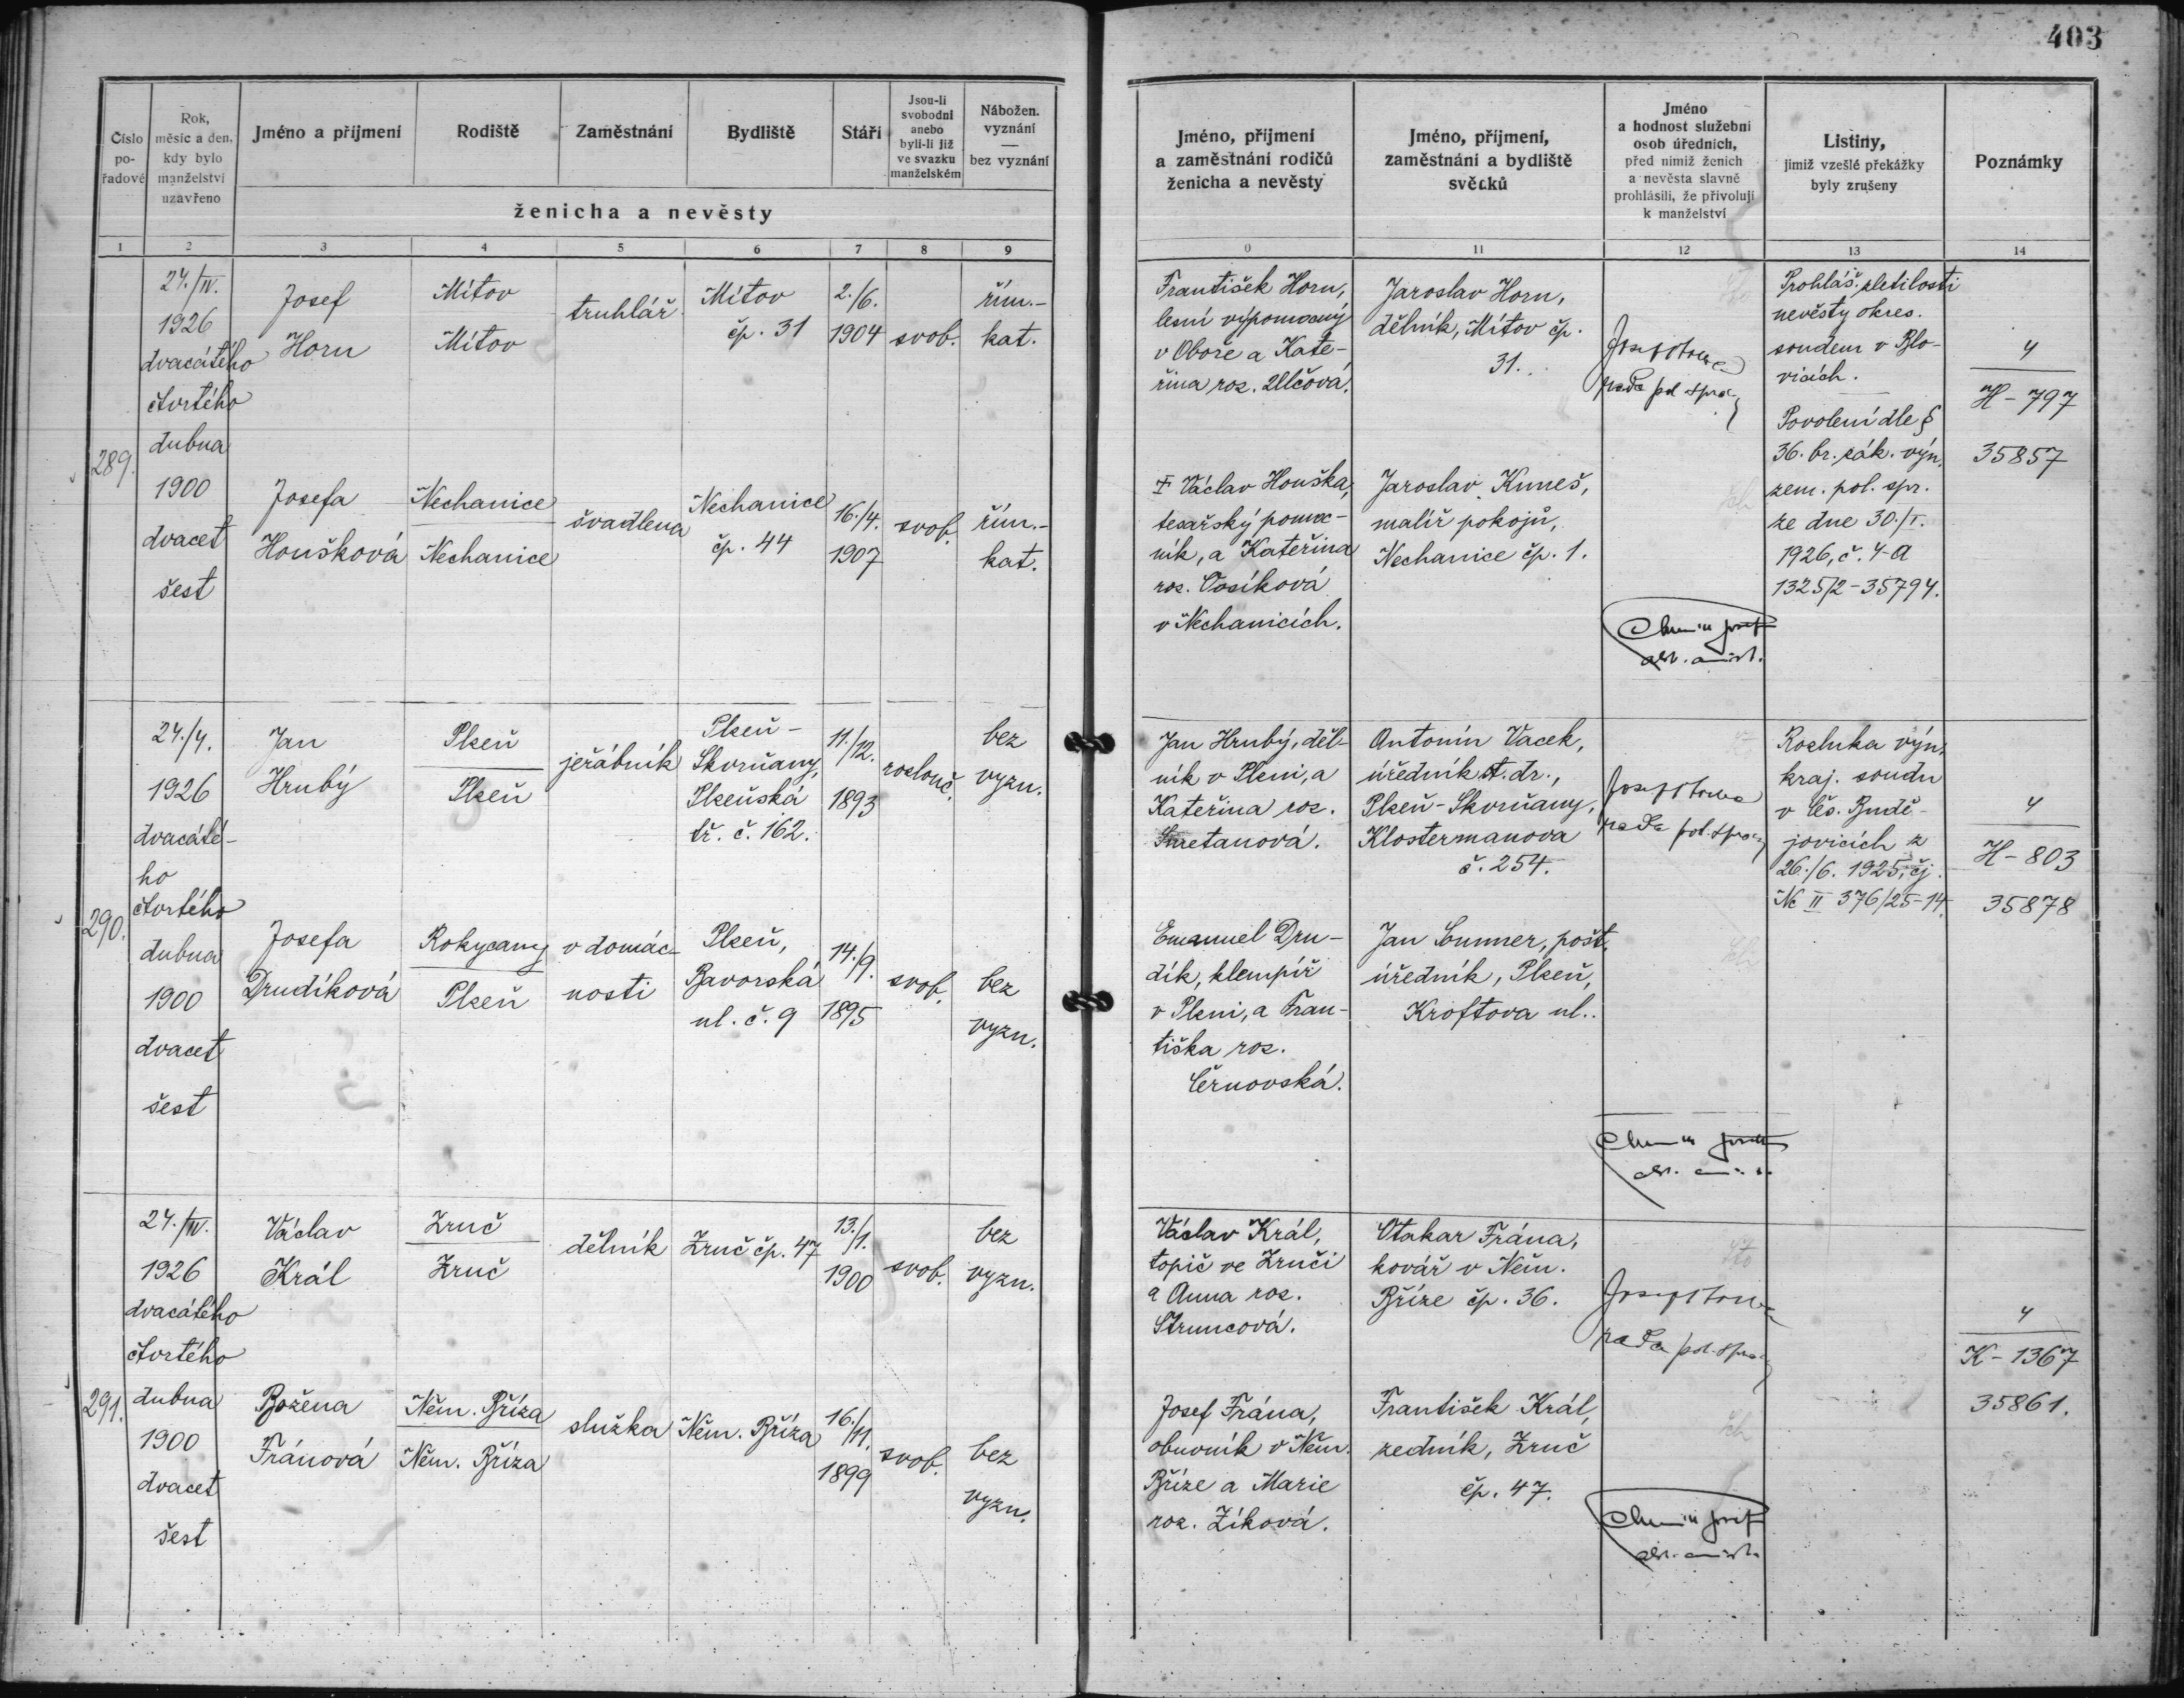 403
Číslo pořadové
Rok, měsíc a den, kdy bylo manželství uzavřeno
Jméno a příjmení
Rodiště
Zaměstnání
Bydliště
Stáří
Jsou-li svobodni anebo byli-li již ve svazku manželském
Nábožen. vyznání — bez vyznání
ženicha a nevěsty
Jméno, příjmení a zaměstnání rodičů ženicha a nevěsty
Jméno, příjmení, zaměstnání a bydliště svědků
Jméno a hodnost služební osob úředních, před nimiž ženich a nevěsta slavně prohlásili, že přivolují k manželství
Listiny, jimiž vzešlé překážky byly zrušeny
Poznámky
1 2 3 4 5 6 7 8 9 0 11 12 13 14
289.
24./IV.
1926
dvacátého
čtvrtého
dubna
1900
dvacet
šest
Josef
Horn
Mítov
Mítov
truhlář
Mítov
čp. 31
2./6.
1904
svob.
řím.-
kat.
František Horn,
lesní výpomocný
v Oboře a Kate-
řina roz. Ulčová.
Jaroslav Horn,
dělník, Mítov čp.
31.
rada pol. správy
Prohláš. zletilosti
nevěsty okres.
soudem v Blo-
vicích.
Povolení dle §
36. br. zák. výn.
zem. pol. spr.
ze dne 30./I.
1926, č. 4-A
1325/2-35794.
4
H-797
35857
Josefa
Houšková
Nechanice
Nechanice
švadlena
Nechanice
čp. 44
16./4.
1907
svob.
řím.-
kat.
† Václav Houška,
tesařský pomoc-
ník, a Kateřina
roz. Vosíková
v Nechanicích.
Jaroslav Kuneš,
malíř pokojů,
Nechanice čp. 1.
290.
24./4.
1926
dvacáté-
ho
čtvrtého
dubna
1900
dvacet
šest
Jan
Hrubý
Plzeň
Plzeň
jeřábník
Plzeň-
Skvrňany,
Plzeňská
tř. č. 162.
11./12.
1893
rozlouč.
bez
vyzn.
Jan Hrubý, děl-
ník v Plzni, a
Kateřina roz.
Smetanová.
Antonín Vacek,
úředník st. dr.,
Plzeň-Skvrňany,
Klostermanova
č. 254.
rada pol. správy
Rozluka výn.
kraj. soudu
v Čes. Budě-
jovicích z
26./6. 1925, čj.
Nc II 376/25-14.
4
H-803
35878
Josefa
Drudíková
Rokycany
Plzeň
v domác-
nosti
Plzeň,
Bavorská
ul. č. 9
14./9.
1895
svob.
bez
vyzn.
Emanuel Dru-
dík, klempíř
v Plzni, a Fran-
tiška roz.
Černovská.
Jan Summer, pošt.
úředník, Plzeň,
Kroftova ul..
291.
24./IV.
1926
dvacátého
čtvrtého
dubna
1900
dvacet
šest
Václav
Král
Zruč
Zruč
dělník
Zruč čp. 47
13./1.
1900
svob.
bez
vyzn.
Václav Král,
topič ve Zruči
a Anna roz.
Struncová.
Otakar Frána,
kovář v Něm.
Bříze čp. 36.
rada pol. správy
4
K-1367
35861.
Božena
Fránová
Něm. Bříza
Něm. Bříza
služka
Něm. Bříza
16./11.
1899
svob.
bez
vyzn.
Josef Frána,
obuvník v Něm.
Bříze a Marie
roz. Zíková.
František Král,
zedník, Zruč
čp. 47.